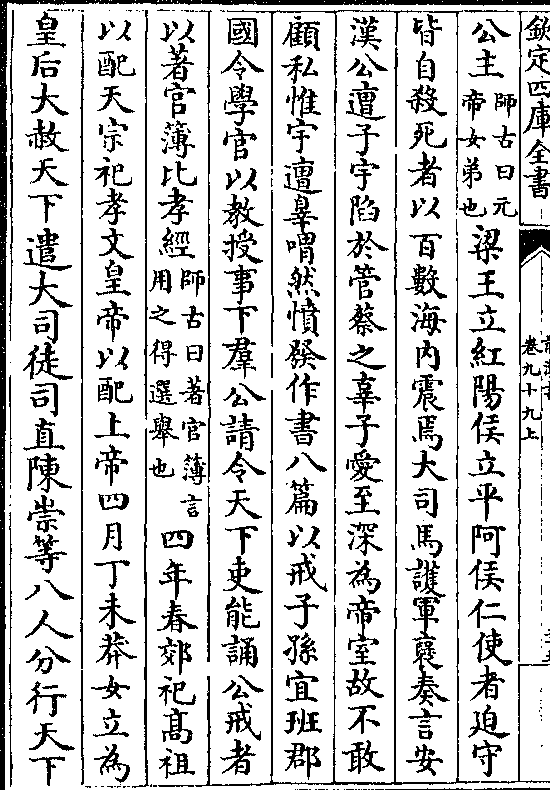 欽定四庫全書
卷九十九上
公主師古曰元帝女弟也梁王立紅陽侯立平阿侯仁使者迫守
皆自殺死者以百數海内震焉大司馬護軍襃奏言安
漢公遭子宇陷於管蔡之辜子愛至深為帝室故不敢
顧私惟宇遭辠喟然憤發作書八篇以戒子孫宜班郡
國令學官以教授事下羣公請令天下吏能誦公戒者
以著官簿比孝經師古曰著官簿言用之得選舉也四年春郊祀髙祖
以配天宗祀孝文皇帝以配上帝四月丁未莽女立為
皇后大赦天下遣大司徒司直陳崇等八人分行天下